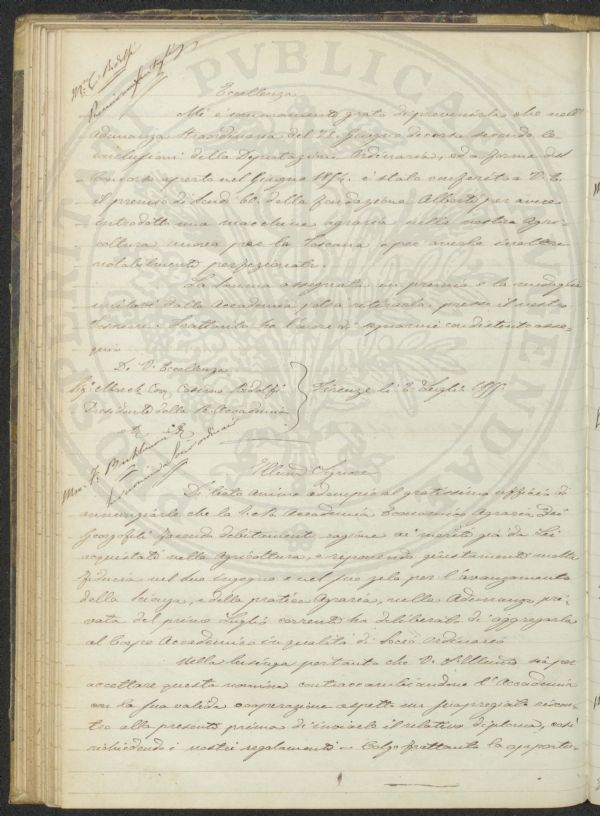 M.se C. Ridolfi
Eccellenza
Mi è sommamente grato di prevenirla che nell'
Adunanza Straordinaria del 28 Giugno decorso secondo le
conclusioni della Deputazione Ordinaria, ed a forma del
Concorso aperto nel Giugno 1854. è stato conferito a V. E.
il premio di Scudi 60. della fondazione Alberti per avere
introdotta una macchina agraria nella nostra Agri-
coltura nuova per la Toscana o per averla inoltre
notabilmente perfezionata.
La somma assegnata in premio e la medaglia
dalla Accademia potrà ritirarla presso il nostro
Tesoriere. Frattanto ho l'onore di segnarmi con distinto osse-
quio
Di V. Eccellenza
Sig.e March. Com. Cosimo Ridolfi
Presidente della R. Accademia
Firenze li 2 Luglio 1855.
Illmo Signore
Di lieto animo adempio al gratissimo ufficio di
annunziarle che la R.le Accademia Economico Agraria dei
Georgofili facendo debitamente ragione ai meriti già da Lei
acquistati nella Agricoltura, e reponendo giustamente molta
fiducia nel suo ingegno e nel suo zelo per l'avanzamento
della Scienza, e della pratica Agraria, nella Adunanza pri-
vata del primo Luglio corrente ha deliberato di aggregarla
al Corpo Accademico in qualità di Socio Ordinario
Nella lusinga pertanto che V. S. Illma sia per
accettare questa nomina contraccambiandone l'Accademia
con la sua valida cooperazione aspetto un suo pregiato riscon-
tro alla presente prima di inviarle il relativo diploma, così
richiedendo i nostri regolamenti. Colgo frattanto la opportu-